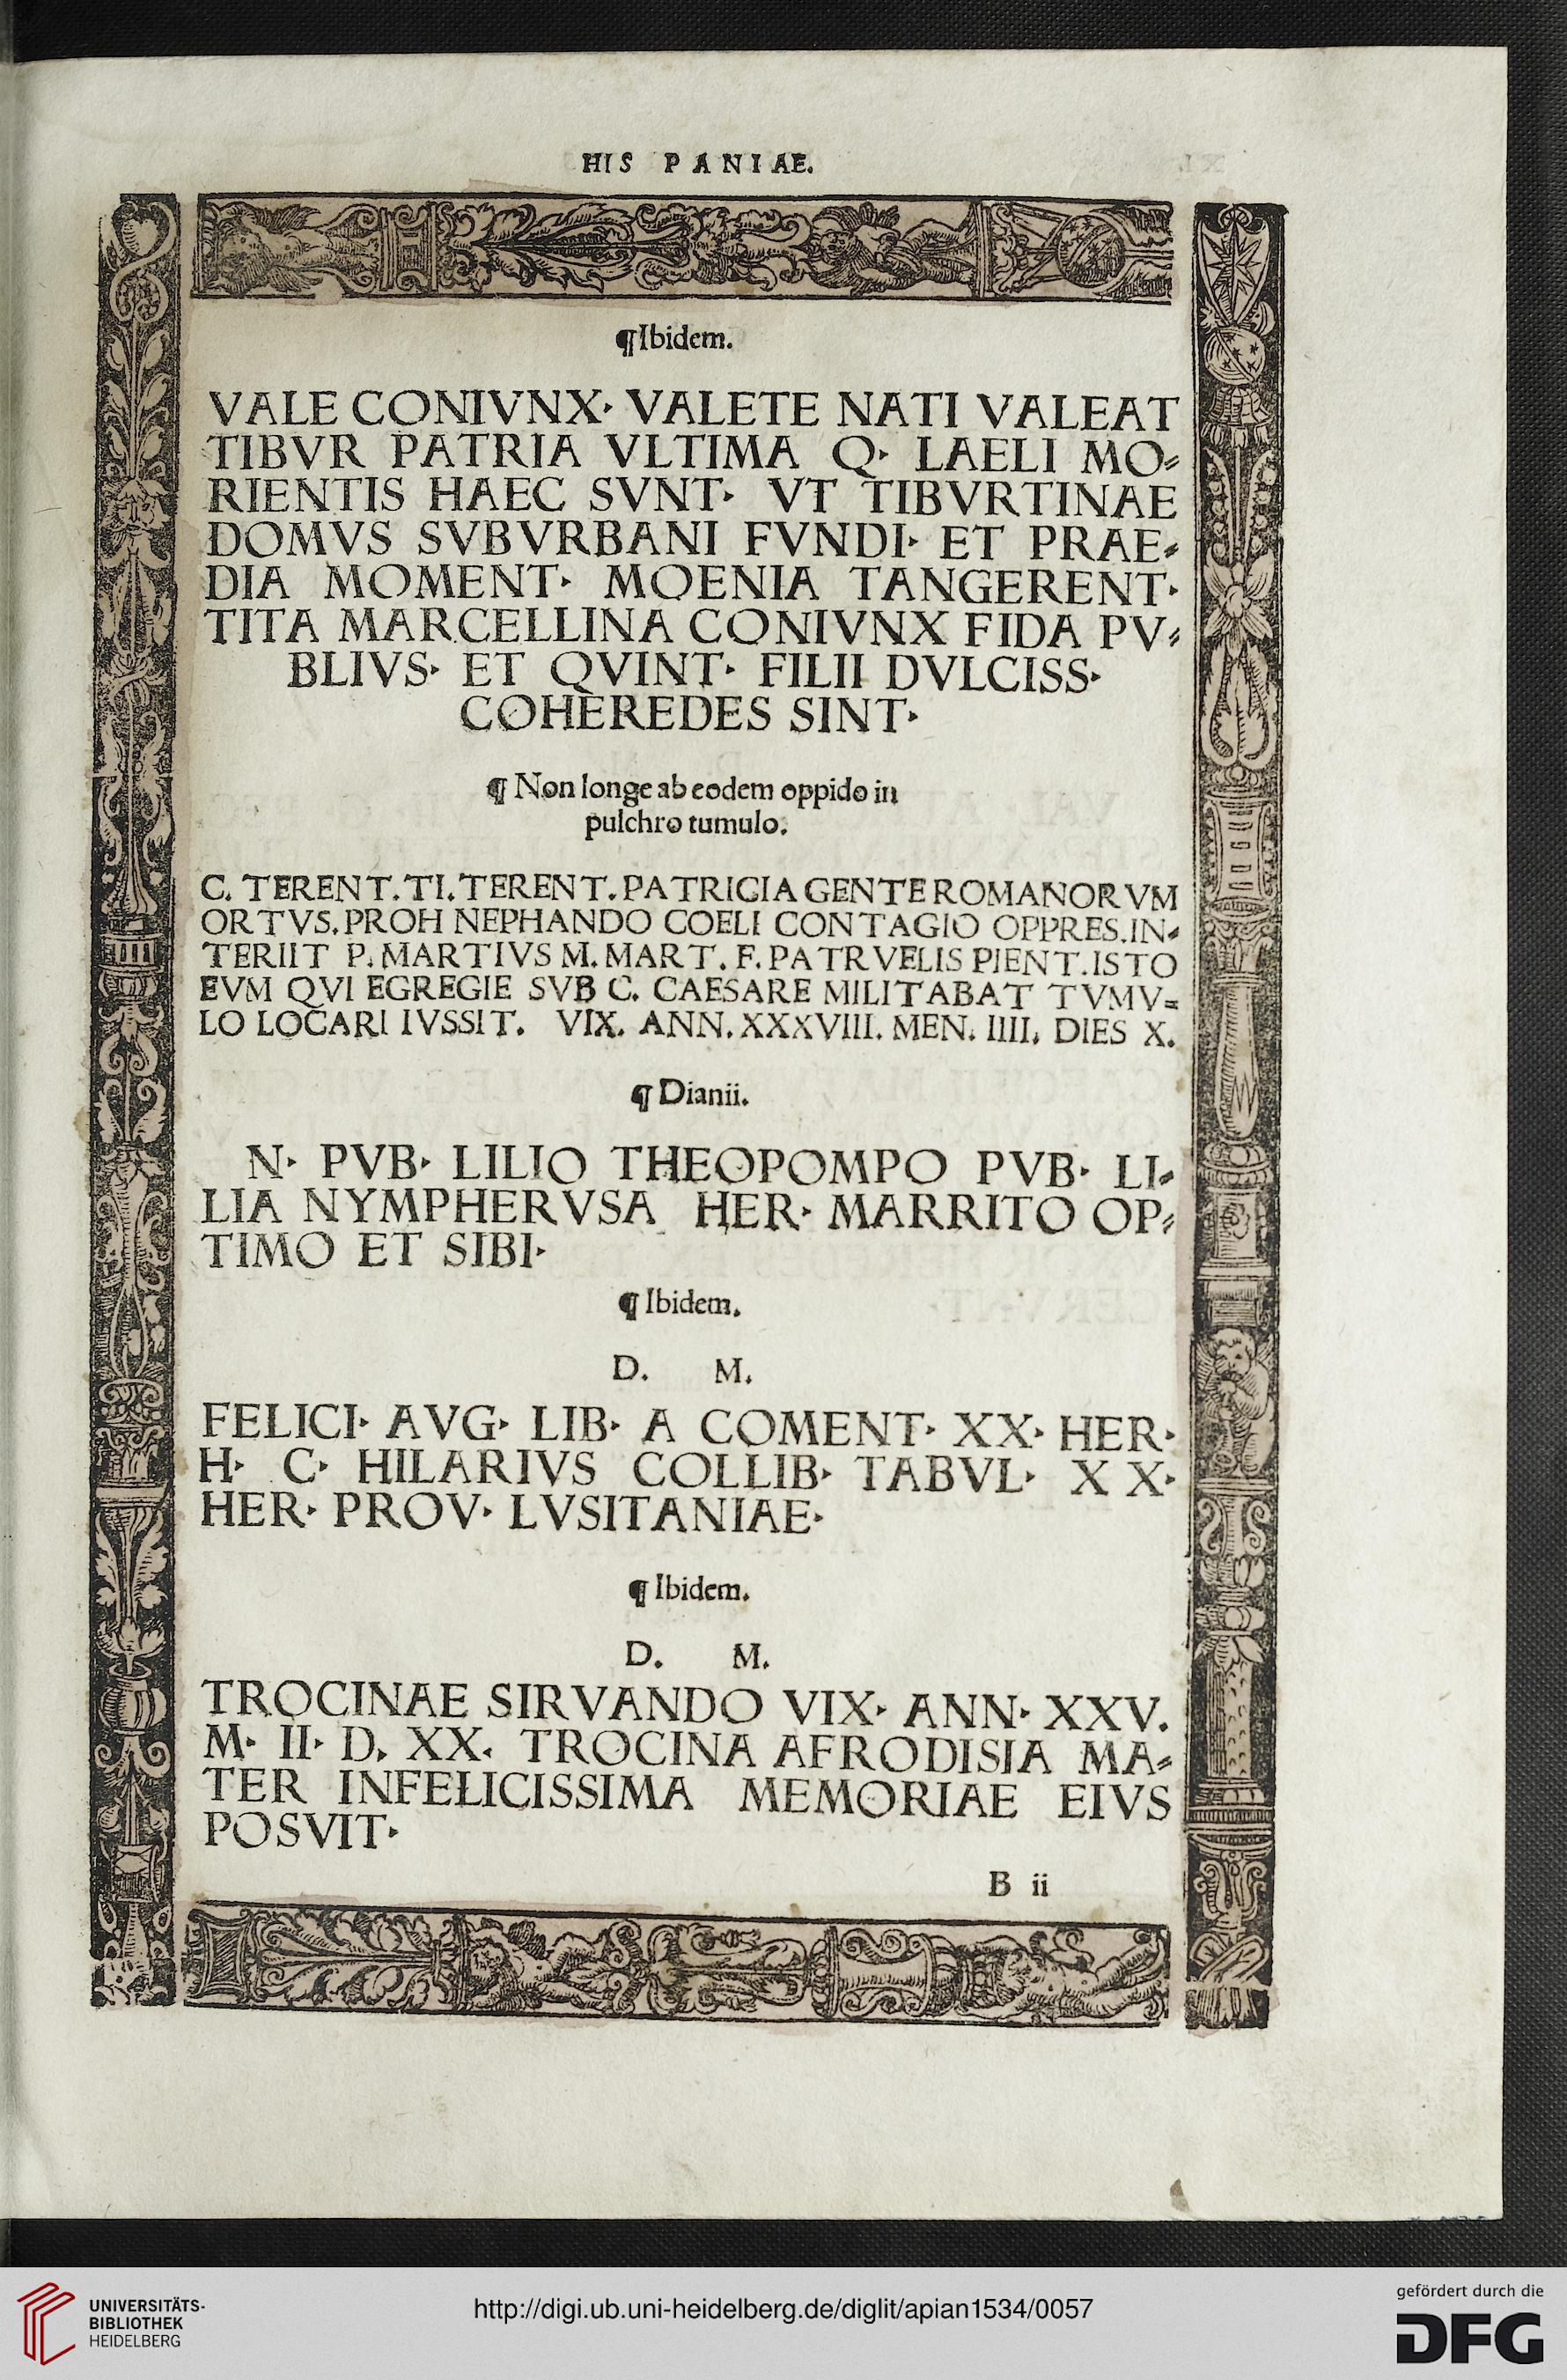 HIS PANIAE.
¶Ibidem.
VALE CONIVNX· VALETE NATI VALEAT
TIBVR PATRIA VLTIMA Q· LAELI MO⸗
RIENTIS HAEC SVNT· VT TIBVRTINAE
DOMVS SVBVRBANI FVNDI· ET PRAE⸗
DIA MOMENT· MOENIA TANGERENT·
TITA MARCELLINA CONIVNX FIDA PV⸗
BLIVS· ET QVINT· FILII DVLCISS·
COHEREDES SINT·
¶ Non longe ab eodem oppido in
pulchro tumulo.
C. TERENT. TI. TERENT. PATRICIA GENTE ROMANORVM
ORTVS. PROH NEPHANDO COELI CONTAGIO OPPRES. IN⸗
TERIIT P. MARTIVS M. MART. F. PATRVELIS PIENT. ISTO
EVM QVI EGREGIE SVB C. CAESARE MILITABAT TVMV⸗
LO LOCARI IVSSIT. VIX. ANN. XXXVIII. MEN. IIII. DIES X.
¶ Dianii.
N· PVB· LILIO THEOPOMPO PVB· LI⸗
LIA NYMPHERVSA HER· MARRITO OP⸗
TIMO ET SIBI·
¶ Ibidem.
D. M.
FELICI· AVG· LIB· A COMENT· XX· HER·
H· C· HILARIVS COLLIB· TABVL· X X·
HER· PROV· LVSITANIAE·
¶ Ibidem.
D. M.
TROCINAE SIRVANDO VIX· ANN· XXV.
M· II· D. XX. TROCINA AFRODISIA MA⸗
TER INFELICISSIMA MEMORIAE EIVS
POSVIT·
B ii
UNIVERSITÄTS-
BIBLIOTHEK
HEIDELBERG
http://digi.ub.uni-heidelberg.de/diglit/apian1534/0057
gefördert durch die
DFG